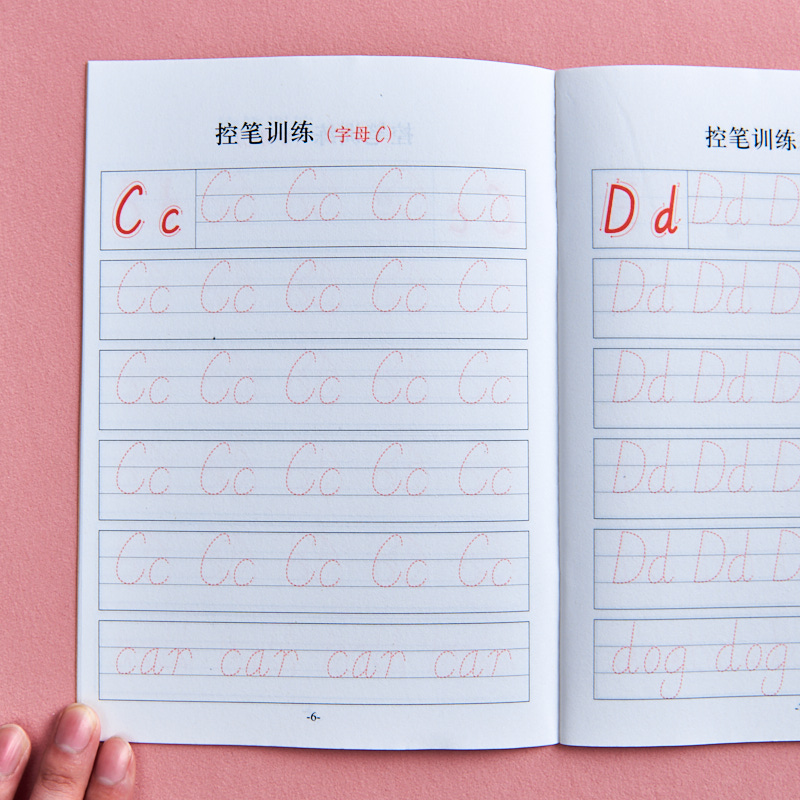 控笔训练（字母C）
C c Cc Cc Cc Cc
Cc Cc Cc Cc Cc
Cc Cc Cc Cc Cc
Cc Cc Cc Cc Cc
Cc Cc Cc Cc Cc
car car car car
-6-
控笔训练
D d Dd D
Dd Dd D
Dd Dd D
Dd Dd D
Dd Dd D
dog dog d